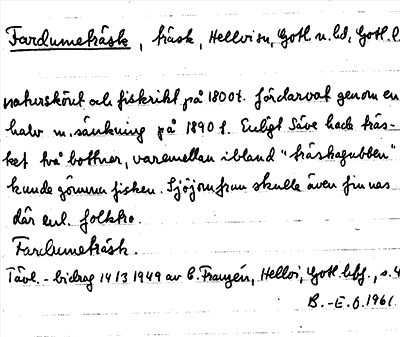 Fardumeträsk, träsk, Hellvi sn, Gotl. n. hd, Gotl. l
naturskönt och fiskrikt på 1800t. fördärvat genom en
halv m. sänkning på 1890 t. Enligt Säve hade träs-
ket två bottnar, varemellan ibland "träskagubben"
kunde gömma fisken. Sjöjomfrun skulle även finnas
där enl. folktro.
Fardumeträsk.
Tävl.-bidrag 14/3 1949 av E. Franzén, Hellvi, Gotl.
B.-E. Ö. 1961.